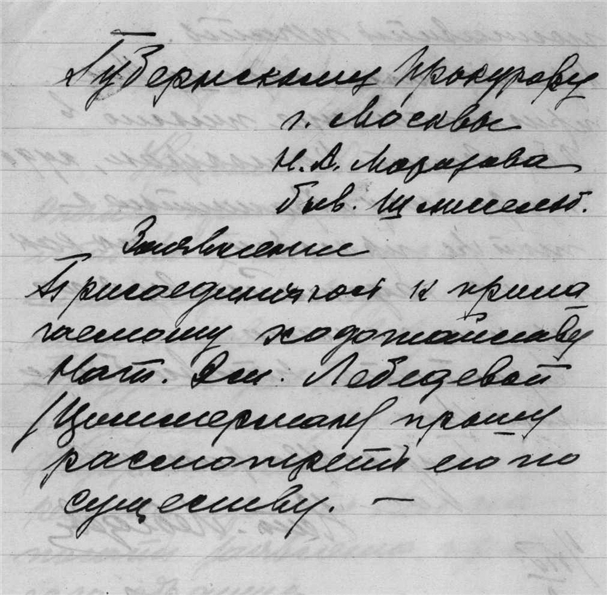 Губернскому Прокурору
г. Москвы
Н. А. Морозова
быв. Шлиссельб.
Заявление
Присоединяясь к прила
гаемому ходотайству
Нат. Дм. Лебедевой
(Циммерман) прошу
рассмотреть его по
существу. —